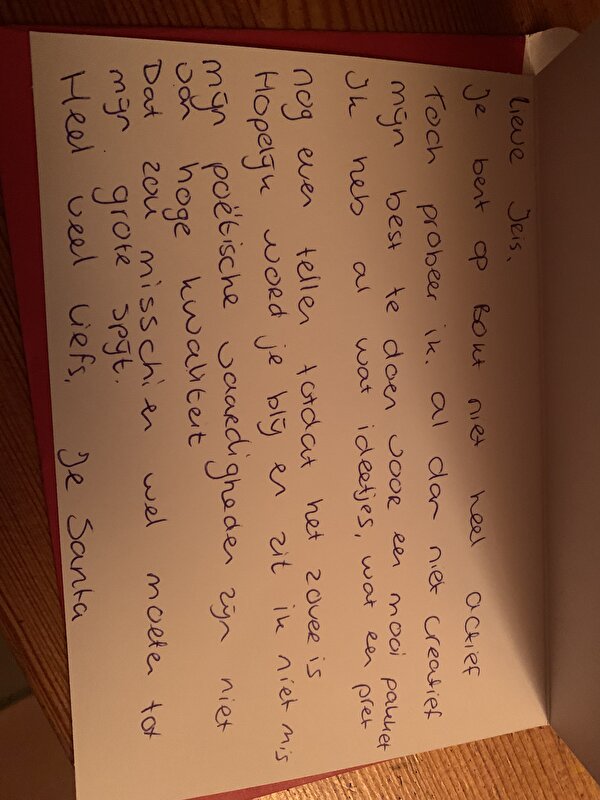 Lieve Jeis,
Je bent op Bokt niet heel actief
Toch probeer ik, al dan niet creatief
mijn best te doen voor een mooi pakket
Ik heb al wat ideetjes, wat een pret
nog even tellen totdat het zover is
Hopelijk word je blij en zit ik niet mis
mijn poëtische vaardigheden zijn niet
van hoge kwaliteit
Dat zou misschien wel moeten tot
mijn grote spijt.
Heel veel liefs, Je Santa